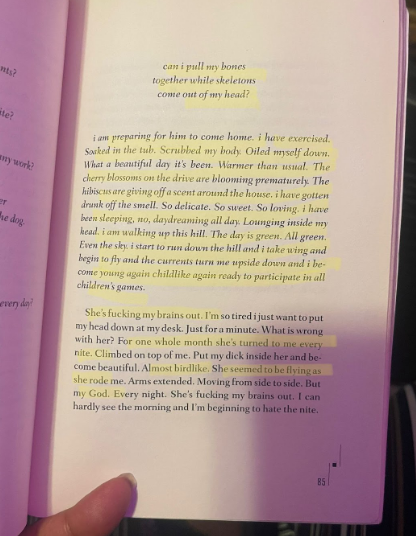 nts?
ite?
my work?
er
he dog.
every day?
can i pull my bones
together while skeletons
come out of my head?
i am preparing for him to come home. i have exercised.
Soaked in the tub. Scrubbed my body. Oiled myself down.
What a beautiful day it's been. Warmer than usual. The
cherry blossoms on the drive are blooming prematurely. The
hibiscus are giving off a scent around the house. i have gotten
drunk off the smell. So delicate. So sweet. So loving. i have
been sleeping, no, daydreaming all day. Lounging inside my
head. i am walking up this hill. The day is green. All green.
Even the sky. i start to run down the hill and i take wing and
begin to fly and the currents turn me upside down and i be-
come young again childlike again ready to participate in all
children's games.
She's fucking my brains out. I'm so tired i just want to put
my head down at my desk. Just for a minute. What is wrong
with her? For one whole month she's turned to me every
nite. Climbed on top of me. Put my dick inside her and be-
come beautiful. Almost birdlike. She seemed to be flying as
she rode me. Arms extended. Moving from side to side. But
my God. Every night. She's fucking my brains out. I can
hardly see the morning and I'm beginning to hate the nite.
85